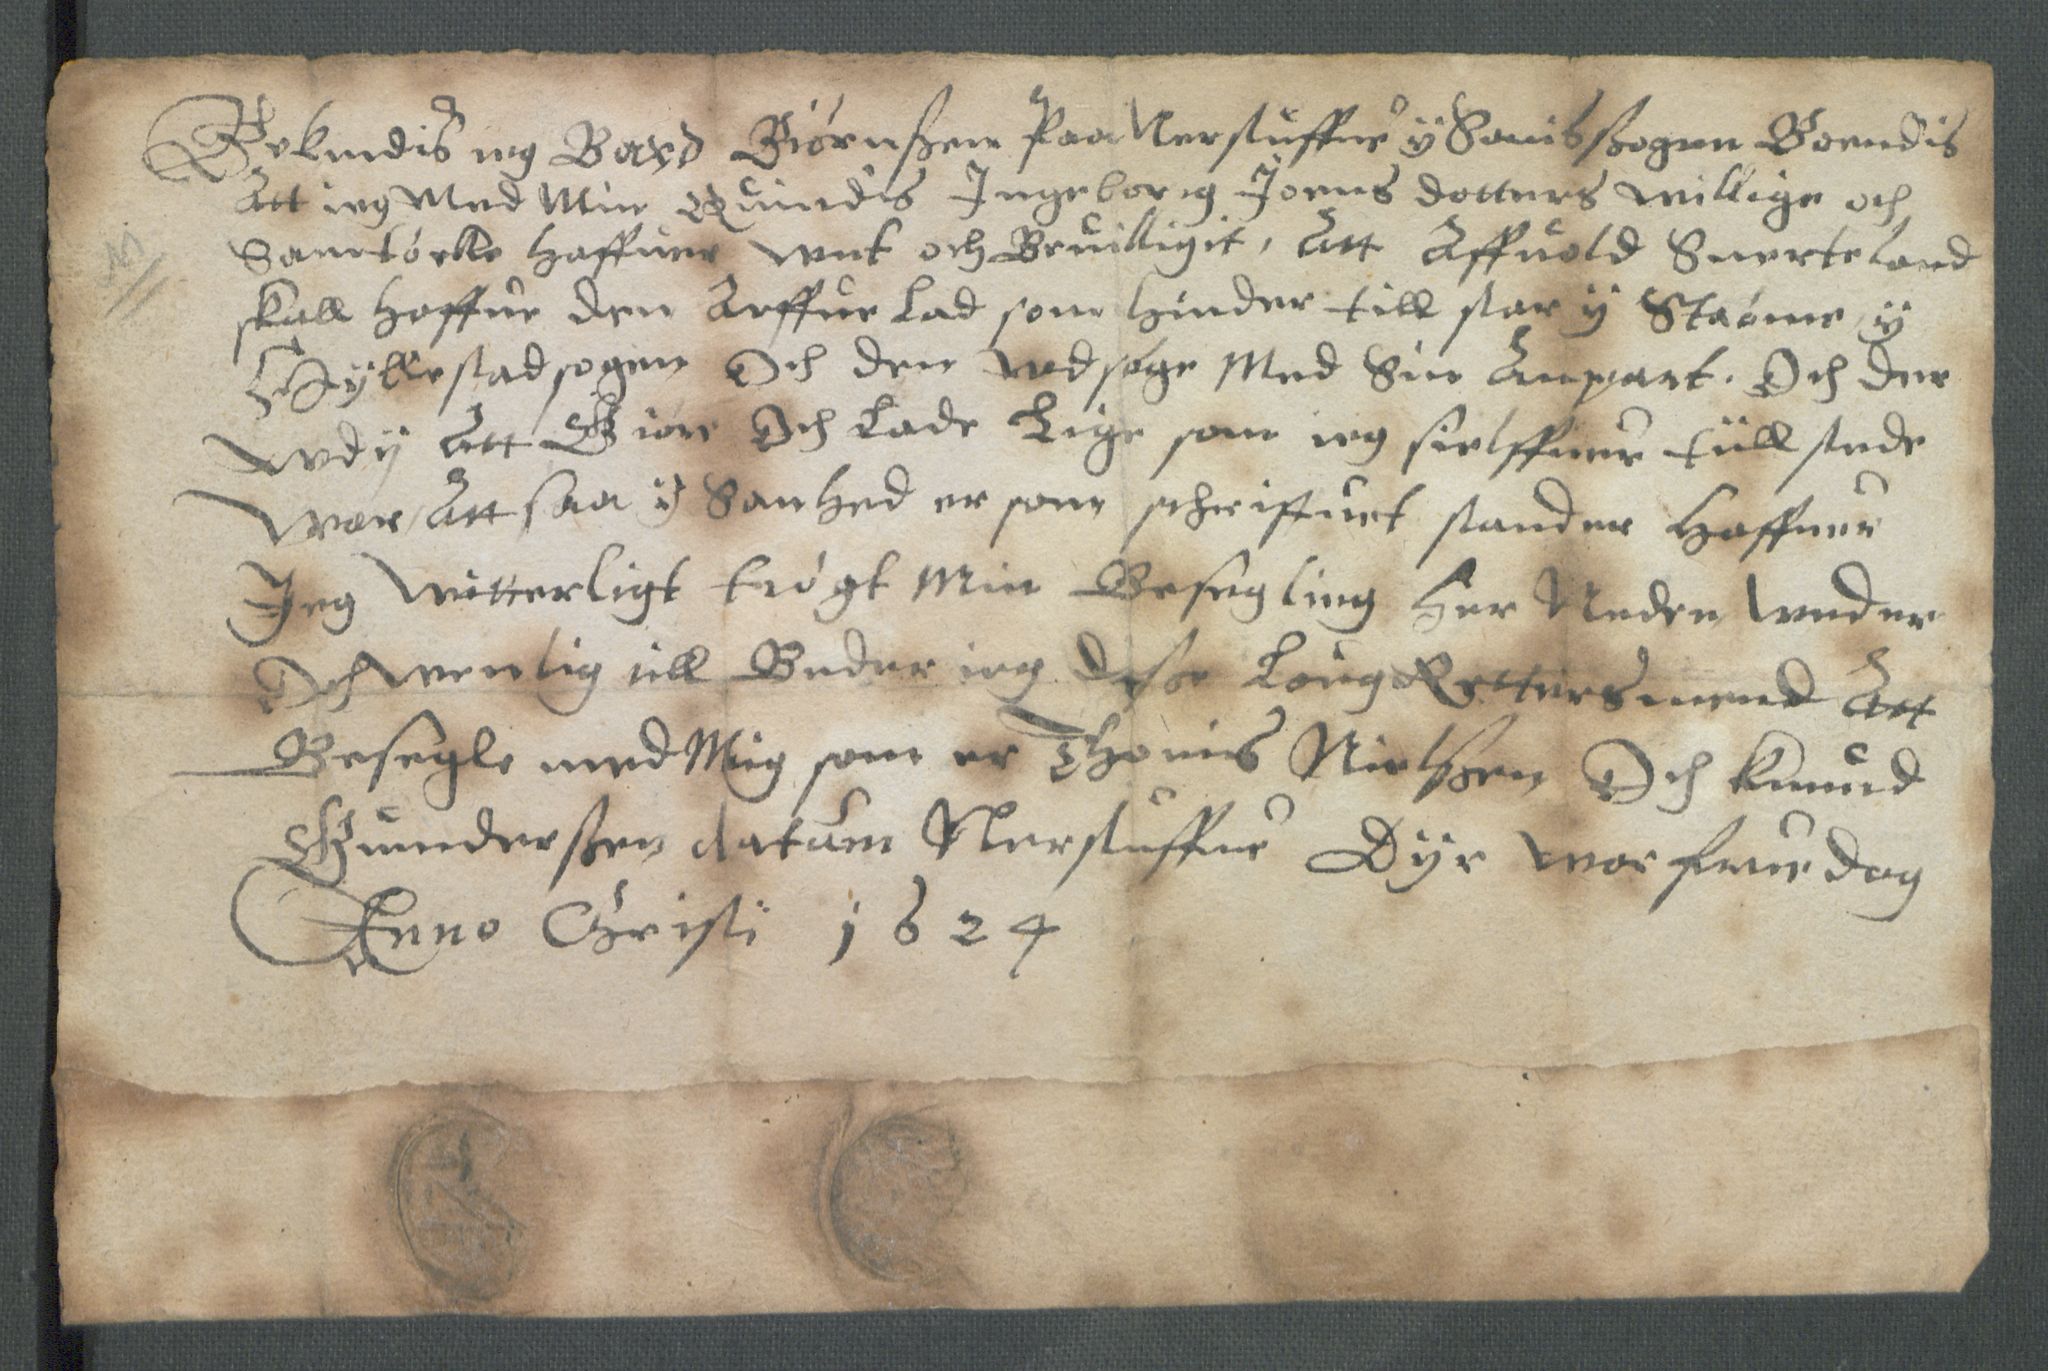 Bekendis ieg Bard Biørnßen Paa Nerstuffue ÿ Sanis sogen Boendis
Att ieg Med Min Quindis Ingeborig Joens dotters willige och
Samtøcke haffuer wnt och Beuilligit, Att Affuold Suerteland
skall haffue den Arffue Lad som hinder till star ÿ Staóme, ÿ
Hÿllestad sogen Och den wdsøge Med Sin Anpart. Och der
wdÿ Att Giøre Och Lade Lige som ieg sielffuer tüll stede
war, Att saa ÿ Sanhed er som schrifftuet stander Haffuer
Jeg witterligt trøgt Min Besegling her Neden wnder
Och wenlig till Beder ieg desse Loug Rettersmend Att
Besegle med Mig som er Thonis Nielßen Och Knuud
Gunderßen datum Nerstuffue Dÿre wor frue dag
Anno Christi 1624